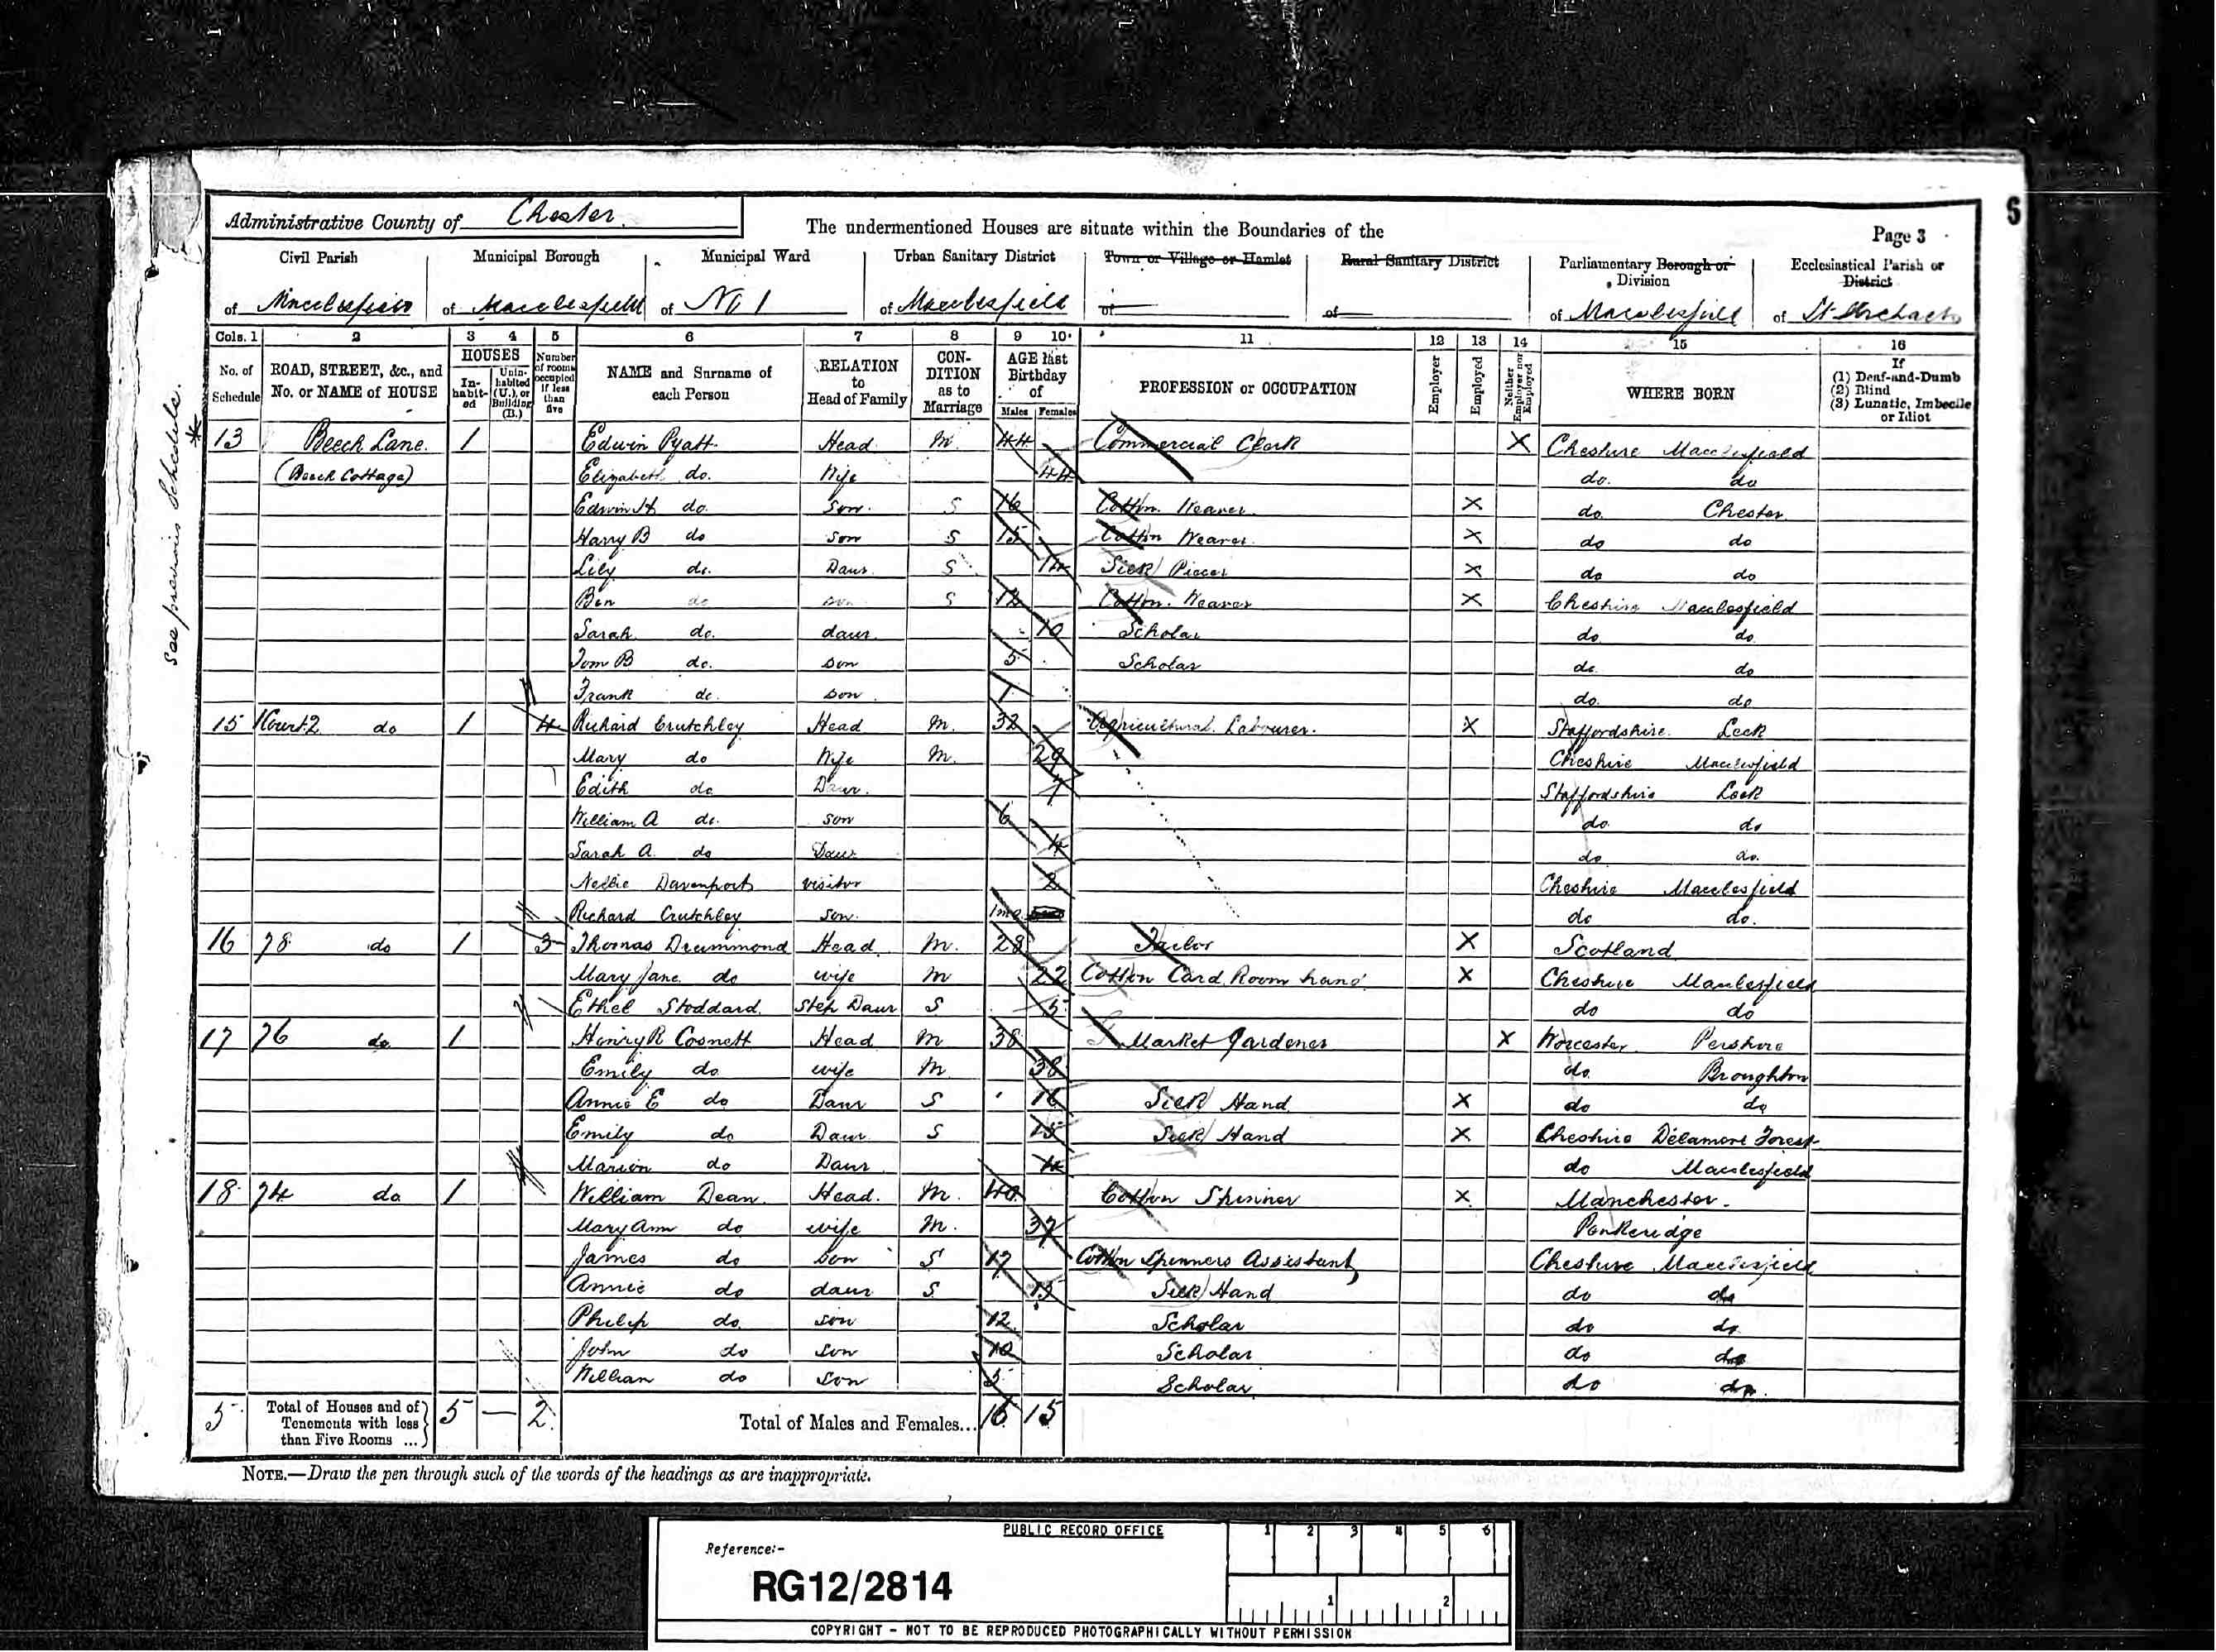 Administrative County of Chester. The undermentioned Houses are situate within the Boundaries of the Page 3
6
Civil Parish Municipal Borough Municipal Ward Urban Sanitary District Town or Village or Hamlet Rural Sanitary District Parliamentary Borough or Division Ecclesiastical Parish or District
of Macclesfield of Macclesfield of No 1 of Macclesfield of of of Macclesfield of St Michaels
Cols. 1 2 3 4 5 6 7 8 9 10 11 12 13 14 15 16
No. of Schedule ROAD, STREET, &c., and No. or NAME of HOUSE HOUSES Inhabited Uninhabited (U.), or Building (B.) Number of rooms occupied if less than five NAME and Surname of each Person RELATION to Head of Family CONDITION as to Marriage AGE last Birthday of Males Females PROFESSION or OCCUPATION Employer Employed Neither Employer nor Employed WHERE BORN If (1) Deaf-and-Dumb (2) Blind (3) Lunatic, Imbecile or Idiot
see previous Schedule. *
13 Beech Lane. 1 Edwin Pyatt Head M. 44 Commercial Clerk X Cheshire Macclesfield
(Beech Cottage) Elizabeth do. Wife 44 do. do
Edwin H do. Son. S 16 Cotton Weaver X do. Chester
Harry B do son S 15 Cotton Weaver X do do
Lily do. Daur. S 14 Silk Piecer X do do
Ben do son S 12 Cotton Weaver X Cheshire Macclesfield
Sarah do. daur. 10 Scholar do. do.
Tom B do. son 5 Scholar do. do
Frank do. son 1 do. do
15 1 Court 2 do 1 4 Richard Crutchley Head M. 32 Agricultural Labourer. X Staffordshire. Leek
Mary do Wife M. 29 Cheshire Macclesfield
Edith do Daur. 7 Staffordshire Leek
William A do. son 6 do do
Sarah A. do Daur 4 do do.
Nellie Davenport visitor 2 Cheshire Macclesfield
Richard Crutchley son. 1 mo do do.
16 78 do 1 3 Thomas Drummond Head M. 28 Tailor X Scotland
Mary Jane do wife M 22 Cotton Card Room hand X Cheshire Macclesfield
Ethel Stoddard Step Daur S 5 do do
17 76 do 1 Henry R Cosnett Head M 38 Market Gardener X Worcester Pershore
Emily do wife M 38 do. Broughton
Annie E do Daur S 16 Silk Hand X do do
Emily do Daur S 15 Silk Hand X Cheshire Delamore Forest
Marion do Daur 4 do Macclesfield
18 74 do 1 William Dean Head. M. 40 Cotton Spinner X Manchester.
Mary Ann do wife M. 37 Penkeridge
James do son S 17 Cotton Spinners Assistant Cheshire Macclesfield
Annie do daur S. 15 Silk Hand do do
Philip do. son 12 Scholar do do.
John do son 10 Scholar do do
William do son 5 Scholar do do.
5 Total of Houses and of Tenements with less than Five Rooms ... 5 — 2 Total of Males and Females... 16 15
NOTE.—Draw the pen through such of the words of the headings as are inappropriate.
PUBLIC RECORD OFFICE
Reference:-
RG12/2814
1 2 3 4 5 6
1 2
COPYRIGHT - NOT TO BE REPRODUCED PHOTOGRAPHICALLY WITHOUT PERMISSION